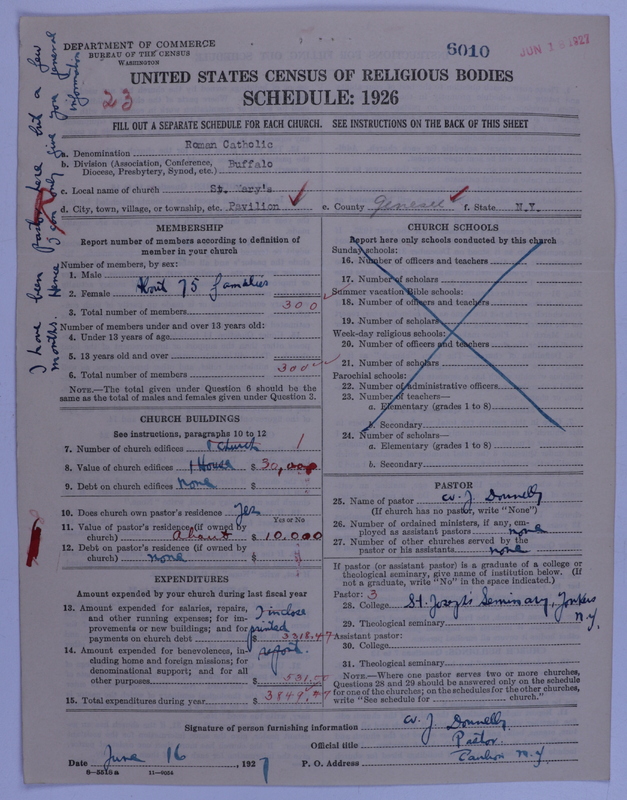 DEPARTMENT OF COMMERCE
BUREAU OF THE CENSUS
WASHINGTON
6010
JUN 18 1927
23
UNITED STATES CENSUS OF RELIGIOUS BODIES
SCHEDULE: 1926
FILL OUT A SEPARATE SCHEDULE FOR EACH CHURCH. SEE INSTRUCTIONS ON THE BACK OF THIS SHEET
I have been pastor here but a few
months. Hence I can only give you general
information
a. Denomination Roman Catholic
b. Division (Association, Conference, Diocese, Presbytery, Synod, etc.) Buffalo
c. Local name of church St. Mary's
d. City, town, village, or township, etc. Pavilion e. County Genesee f. State N.Y.
MEMBERSHIP
Report number of members according to definition of member in your church
Number of members, by sex:
1. Male
2. Female About 75 families
3. Total number of members 300
Number of members under and over 13 years old:
4. Under 13 years of age
5. 13 years old and over
6. Total number of members 300
NOTE.—The total given under Question 6 should be the same as the total of males and females given under Question 3.
CHURCH BUILDINGS
See instructions, paragraphs 10 to 12
7. Number of church edifices 1 Church 1
8. Value of church edifices 1 House $ 30,000
9. Debt on church edifices None $
10. Does church own pastor's residence Yes
Yes or No
11. Value of pastor's residence (if owned by church) About $ 10.000
12. Debt on pastor's residence (if owned by church) none $
EXPENDITURES
Amount expended by your church during last fiscal year
13. Amount expended for salaries, repairs, and other running expenses; for improvements or new buildings; and for payments on church debt I inclose printed report. $ 3318.47
14. Amount expended for benevolences, including home and foreign missions; for denominational support; and for all other purposes $ 531.00
15. Total expenditures during year $ 3849.47
CHURCH SCHOOLS
Report here only schools conducted by this church
Sunday schools:
16. Number of officers and teachers
17. Number of scholars
Summer vacation Bible schools:
18. Number of officers and teachers
19. Number of scholars
Week-day religious schools:
20. Number of officers and teachers
21. Number of scholars
Parochial schools:
22. Number of administrative officers
23. Number of teachers—
a. Elementary (grades 1 to 8)
b. Secondary
24. Number of scholars—
a. Elementary (grades 1 to 8)
b. Secondary
PASTOR
25. Name of pastor W. J. Donnelly
(If church has no pastor, write "None")
26. Number of ordained ministers, if any, employed as assistant pastors none
27. Number of other churches served by the pastor or his assistants none
If pastor (or assistant pastor) is a graduate of a college or theological seminary, give name of institution below. (If not a graduate, write "No" in the space indicated.)
Pastor: 3
28. College St. Joseph's Seminary, Yonkers N.Y.
29. Theological seminary
Assistant pastor:
30. College
31. Theological seminary
NOTE.—Where one pastor serves two or more churches, Questions 28 and 29 should be answered only on the schedule for one of the churches; on the schedules for the other churches, write "See schedule for church."
Signature of person furnishing information W. J. Donnelly
Official title Pastor
Date June 16, 1927 P. O. Address N.Y.
8—5510a 11—9024